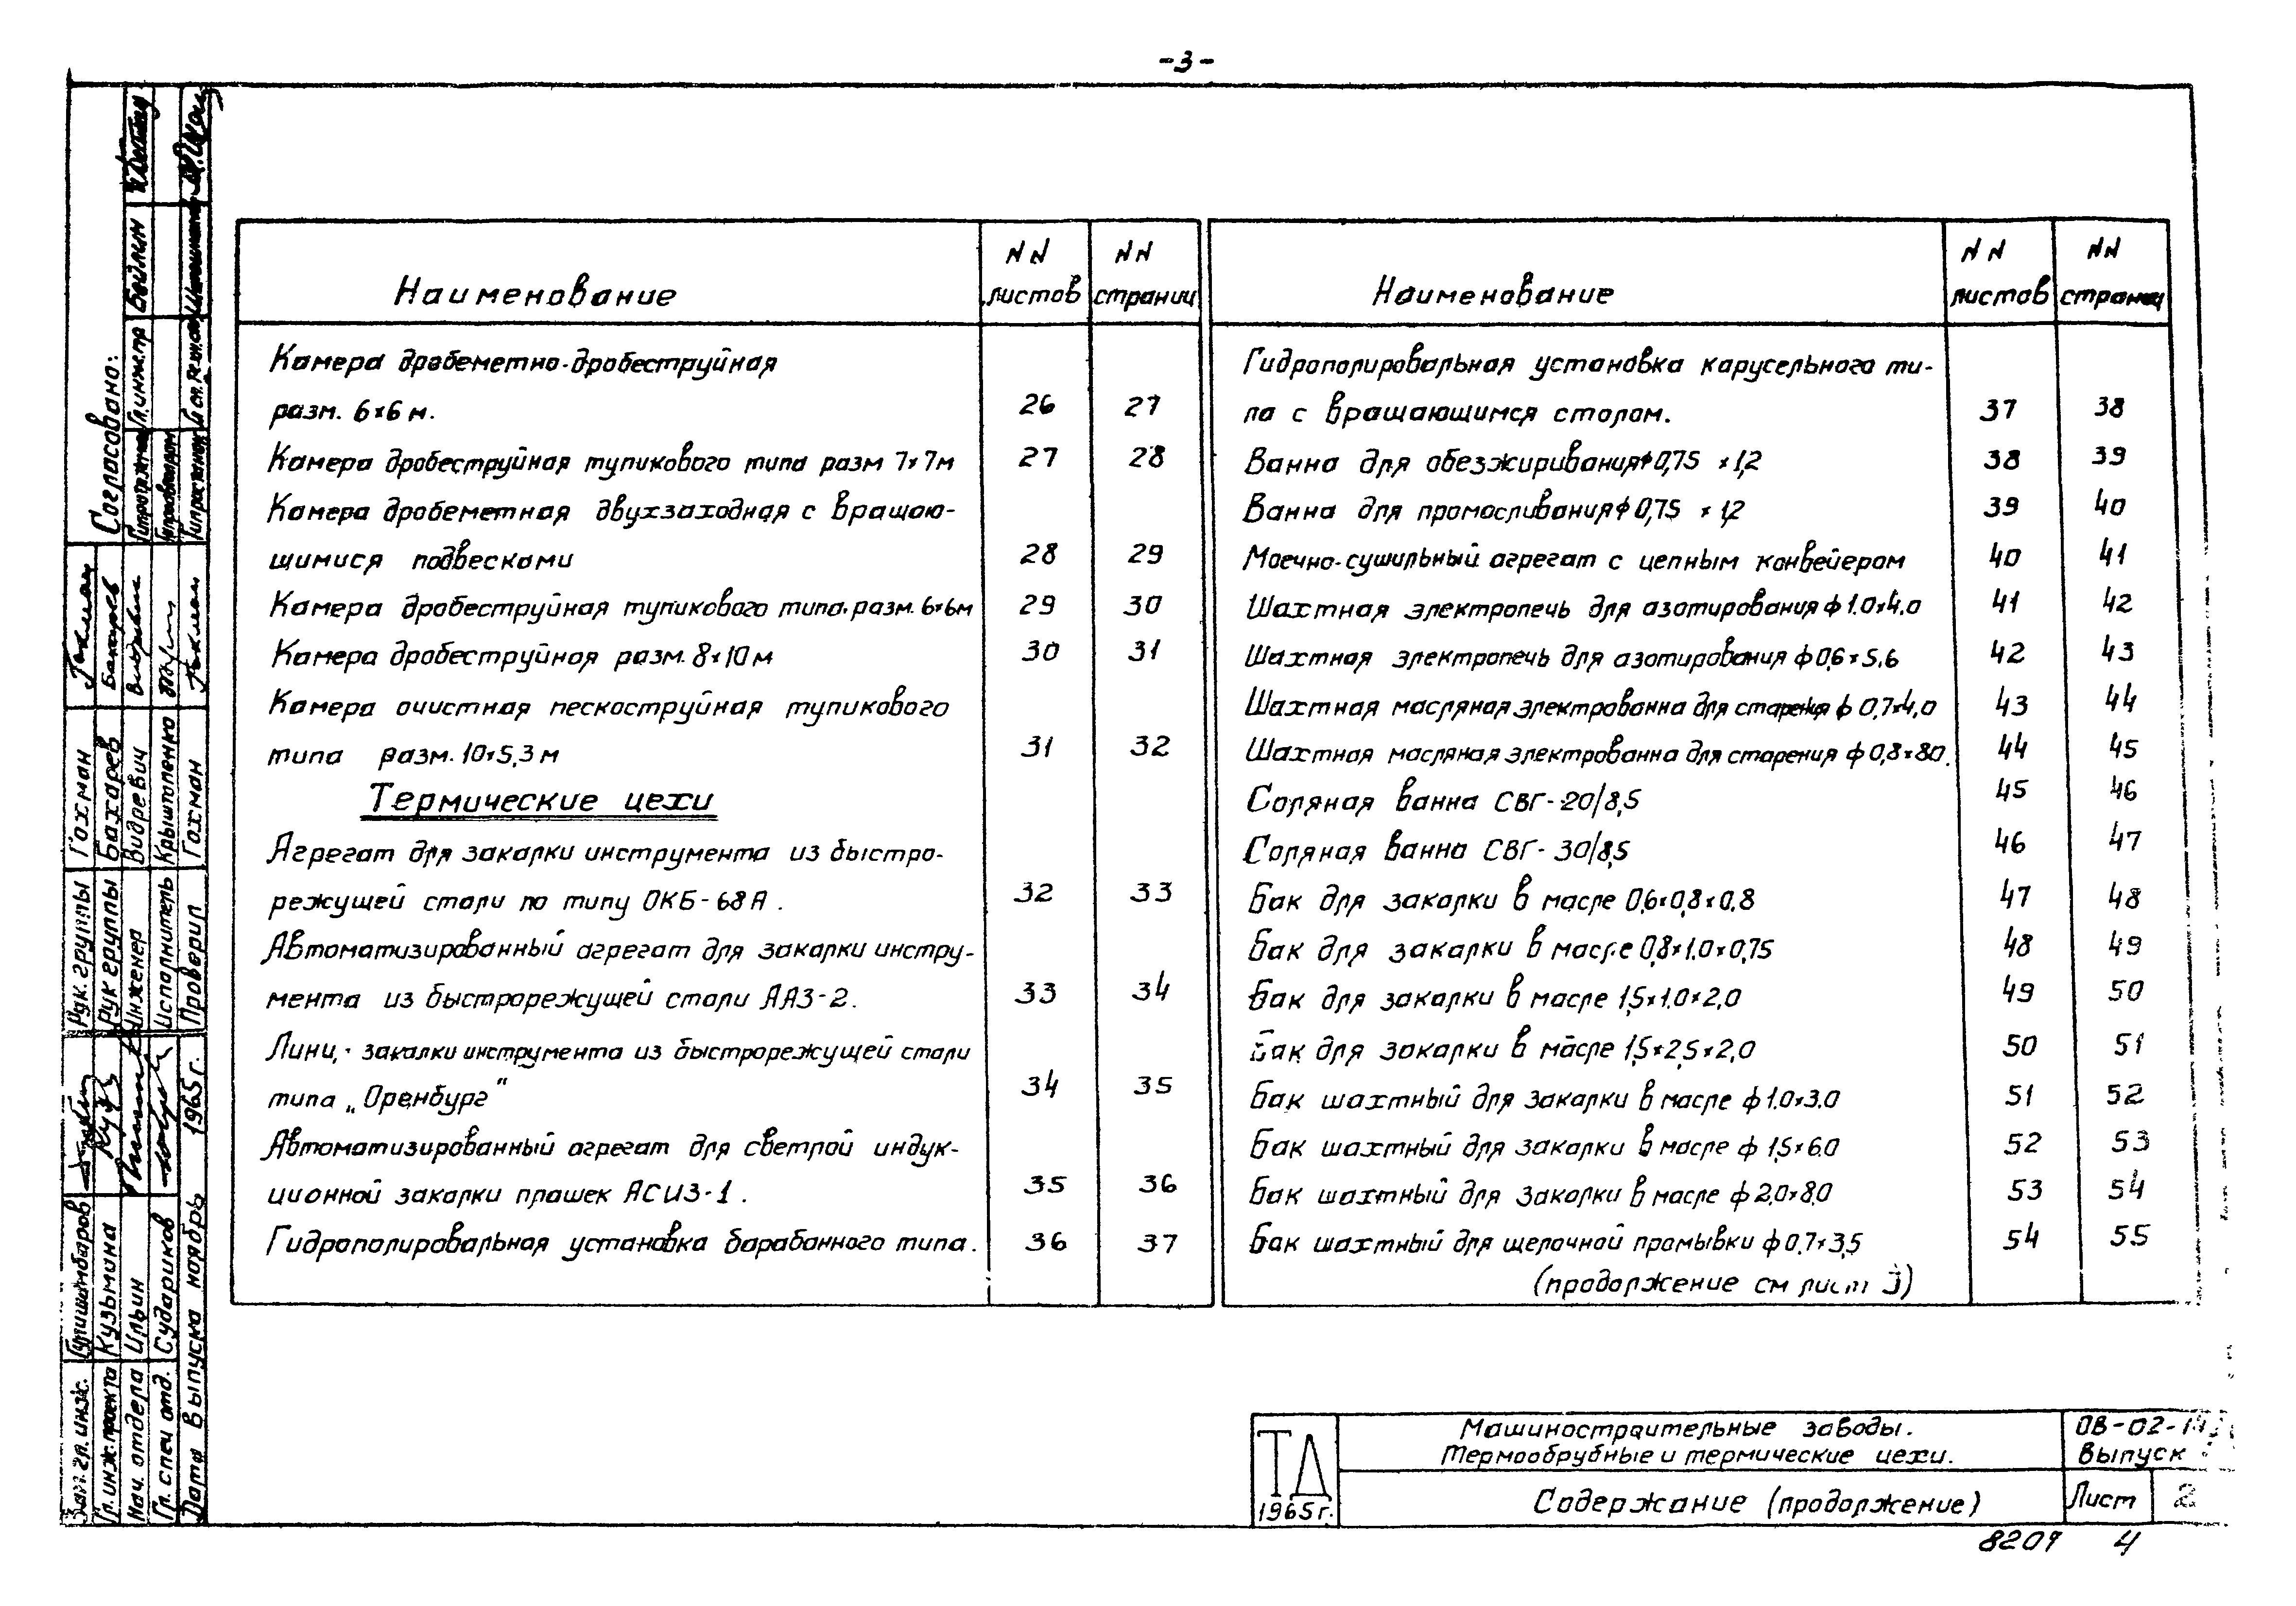 -3-
Наименование
NN листов
NN страниц
Камера дробеметно-дробеструйная
разм. 6×6 м. 26 27
Камера дробеструйная тупикового типа разм 7×7м 27 28
Камера дробеметная двухзаходная с вращаю-
щимися подвесками 28 29
Камера дробеструйная тупикового типа. разм. 6×6м 29 30
Камера дробеструйная разм. 8×10 м 30 31
Камера очистная пескоструйная тупикового
типа разм. 10×5,3 м 31 32
Термические цехи
Агрегат для закалки инструмента из быстро-
режущей стали по типу ОКБ-68А. 32 33
Автоматизированный агрегат для закалки инстру-
мента из быстрорежущей стали ААЗ-2. 33 34
закалки инструмента из быстрорежущей стали
типа „Оренбург" 34 35
Автоматизированный агрегат для светлой индук-
ционной закалки плашек АСИЗ-1. 35 36
Гидрополировальная установка барабанного типа. 36 37
Наименование
NN листов
NN страниц
Гидрополировальная установка карусельного ти-
па с вращающимся столом. 37 38
Ванна для обезжиривания ф 0,75 × 1,2 38 39
Ванна для промасливания ф 0,75 × 1,2 39 40
Моечно-сушильный агрегат с цепным конвейером 40 41
Шахтная электропечь для азотирования ф 1.0×4.0 41 42
Шахтная электропечь для азотирования ф 0,6×5.6 42 43
Шахтная масляная электрованна для старения ф 0,7×4,0 43 44
Шахтная масляная электрованна для старения ф 0,8×8.0. 44 45
Соляная ванна СВГ-20/8,5 45 46
Соляная ванна СВГ-30/8,5 46 47
Бак для закалки в масле 0,6×0,8×0.8 47 48
Бак для закалки в масле 0,8×1.0×0,75 48 49
Бак для закалки в масле 1,5×1.0×2,0 49 50
Бак для закалки в масле 1,5×2,5×2,0 50 51
Бак шахтный для закалки в масле ф 1.0×3.0 51 52
Бак шахтный для закалки в масле ф 1,5×6.0 52 53
Бак шахтный для закалки в масле ф 2.0×8.0 53 54
Бак шахтный для щелочной промывки ф 0.7×3,5 54 55
(продолжение см лист 3)
Согласовано:
Гл. инж. пр Бейлин
Рук. группы Гохман
Рук группы Бахарев
Инженер Видревич
Исполнитель Крыштопенко
Проверил Гохман
Зам. гл. инж.
Гл. инж. проекта Кузьмина
Нач. отдела Ильин
Гл. спец отд. Судариков
Дата выпуска ноябрь 1965 г.
ТД
1965 г.
Машиностроительные заводы.
Термообрубные и термические цехи.
Содержание (продолжение)
ОВ-02-
Выпуск
Лист 2
8209 4